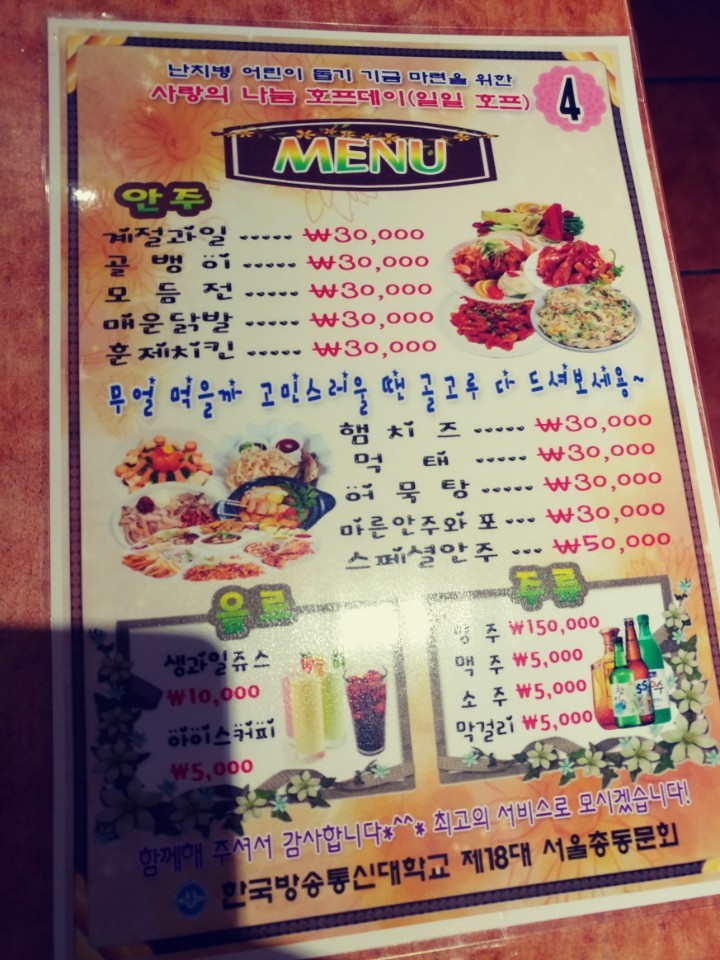 난치병 어린이 돕기 기금 마련을 위한
사랑의 나눔 호프데이(일일 호프)
4
MENU
안주
계절과일 ..... ₩30,000
골뱅이 ..... ₩30,000
모듬전 ..... ₩30,000
매운닭발 ..... ₩30,000
훈제치킨 ..... ₩30,000
무얼 먹을까 고민스러울 땐 골고루 다 드셔보세용~
햄치즈 ..... ₩30,000
먹태 ..... ₩30,000
어묵탕 ..... ₩30,000
마른안주와 포 ... ₩30,000
스페셜안주 ... ₩50,000
음료
생과일쥬스
₩10,000
아이스커피
₩5,000
주류
양주 ₩150,000
맥주 ₩5,000
소주 ₩5,000
막걸리 ₩5,000
함께해 주셔서 감사합니다*^^* 최고의 서비스로 모시겠습니다!
한국방송통신대학교 제18대 서울총동문회